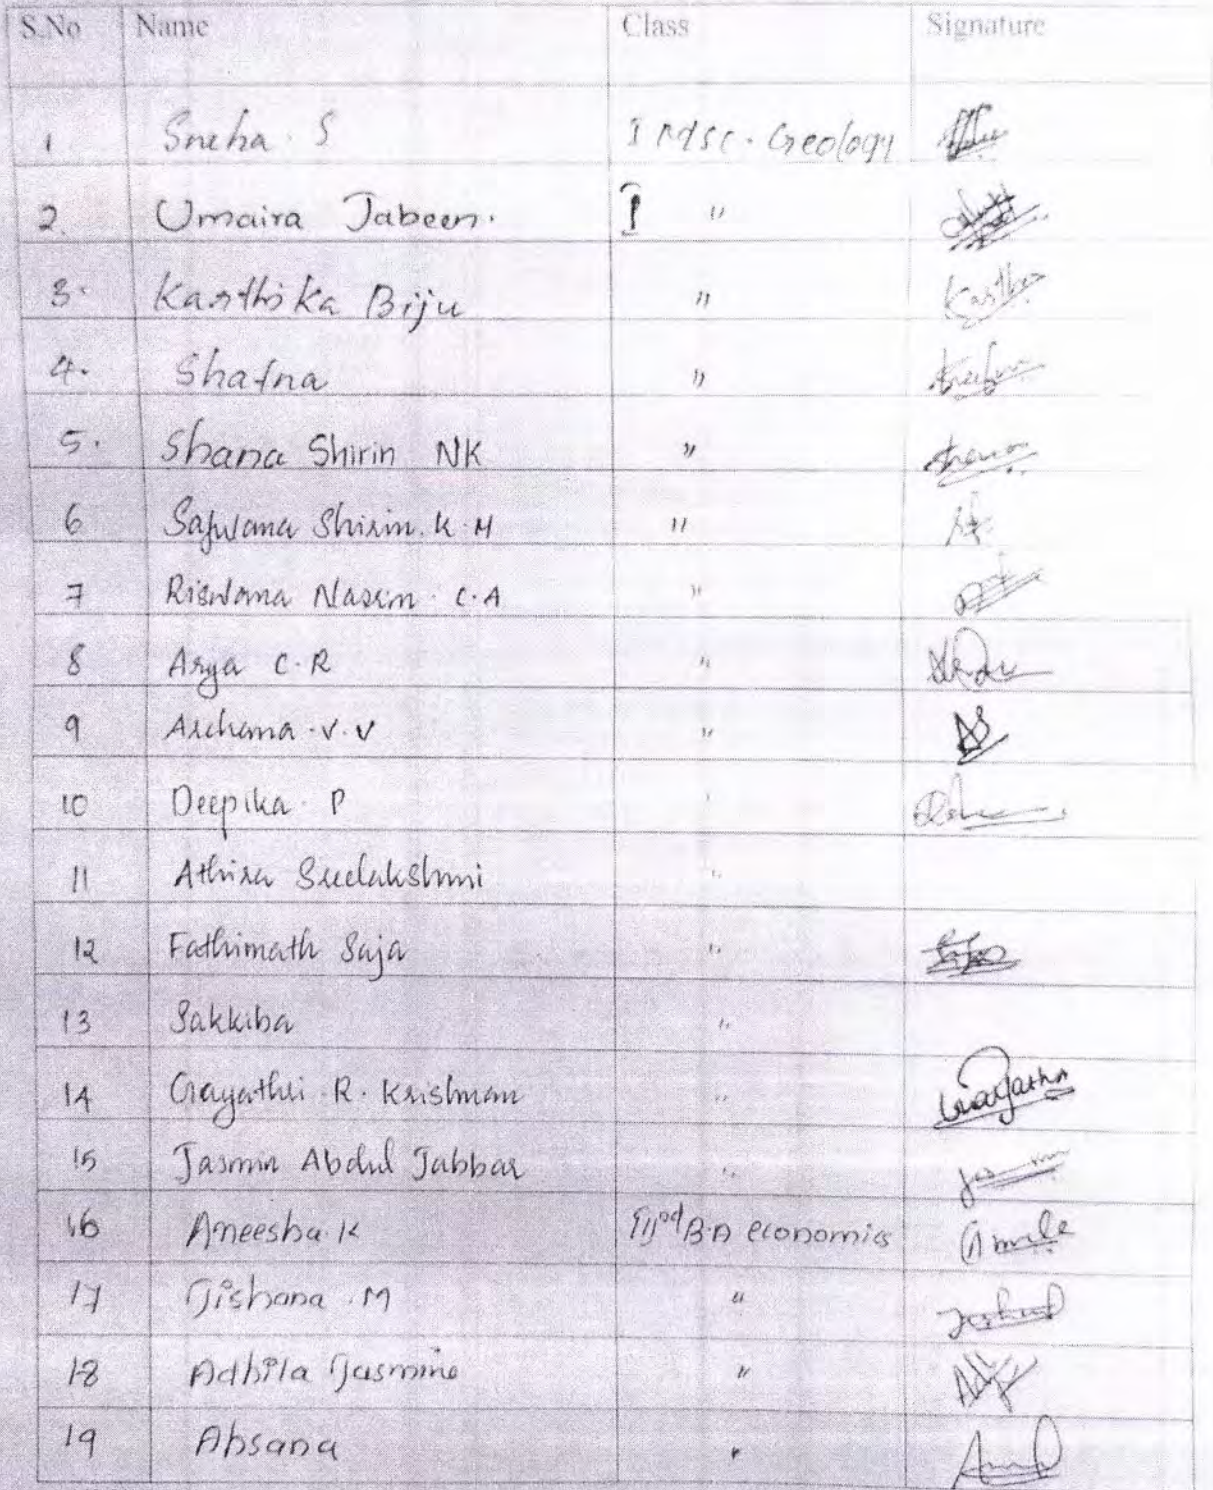 S.No Name Class Signature
1 Sneha. S I MSc. Geology
2. Umaira Jabeen. I "
3. Karthika Biju " Karthi
4. Shafna "
5. Shana Shirin NK " Shana
6 Safwana Shirin. K. M "
7 Riswana Nasrin. C.A "
8 Arya C.R "
9 Archana.V.V "
10 Deepika. P "
11 Athira Sreelakshmi "
12 Fathimath Saja "
13 Sakkiba "
14 Gayathri. R. Krishnan " Gayathri
15 Jasmin Abdul Jabbar "
16 Aneesha. K B.A economics
17 Jishana. M "
18 Adhila Jasmine "
19 Absana "